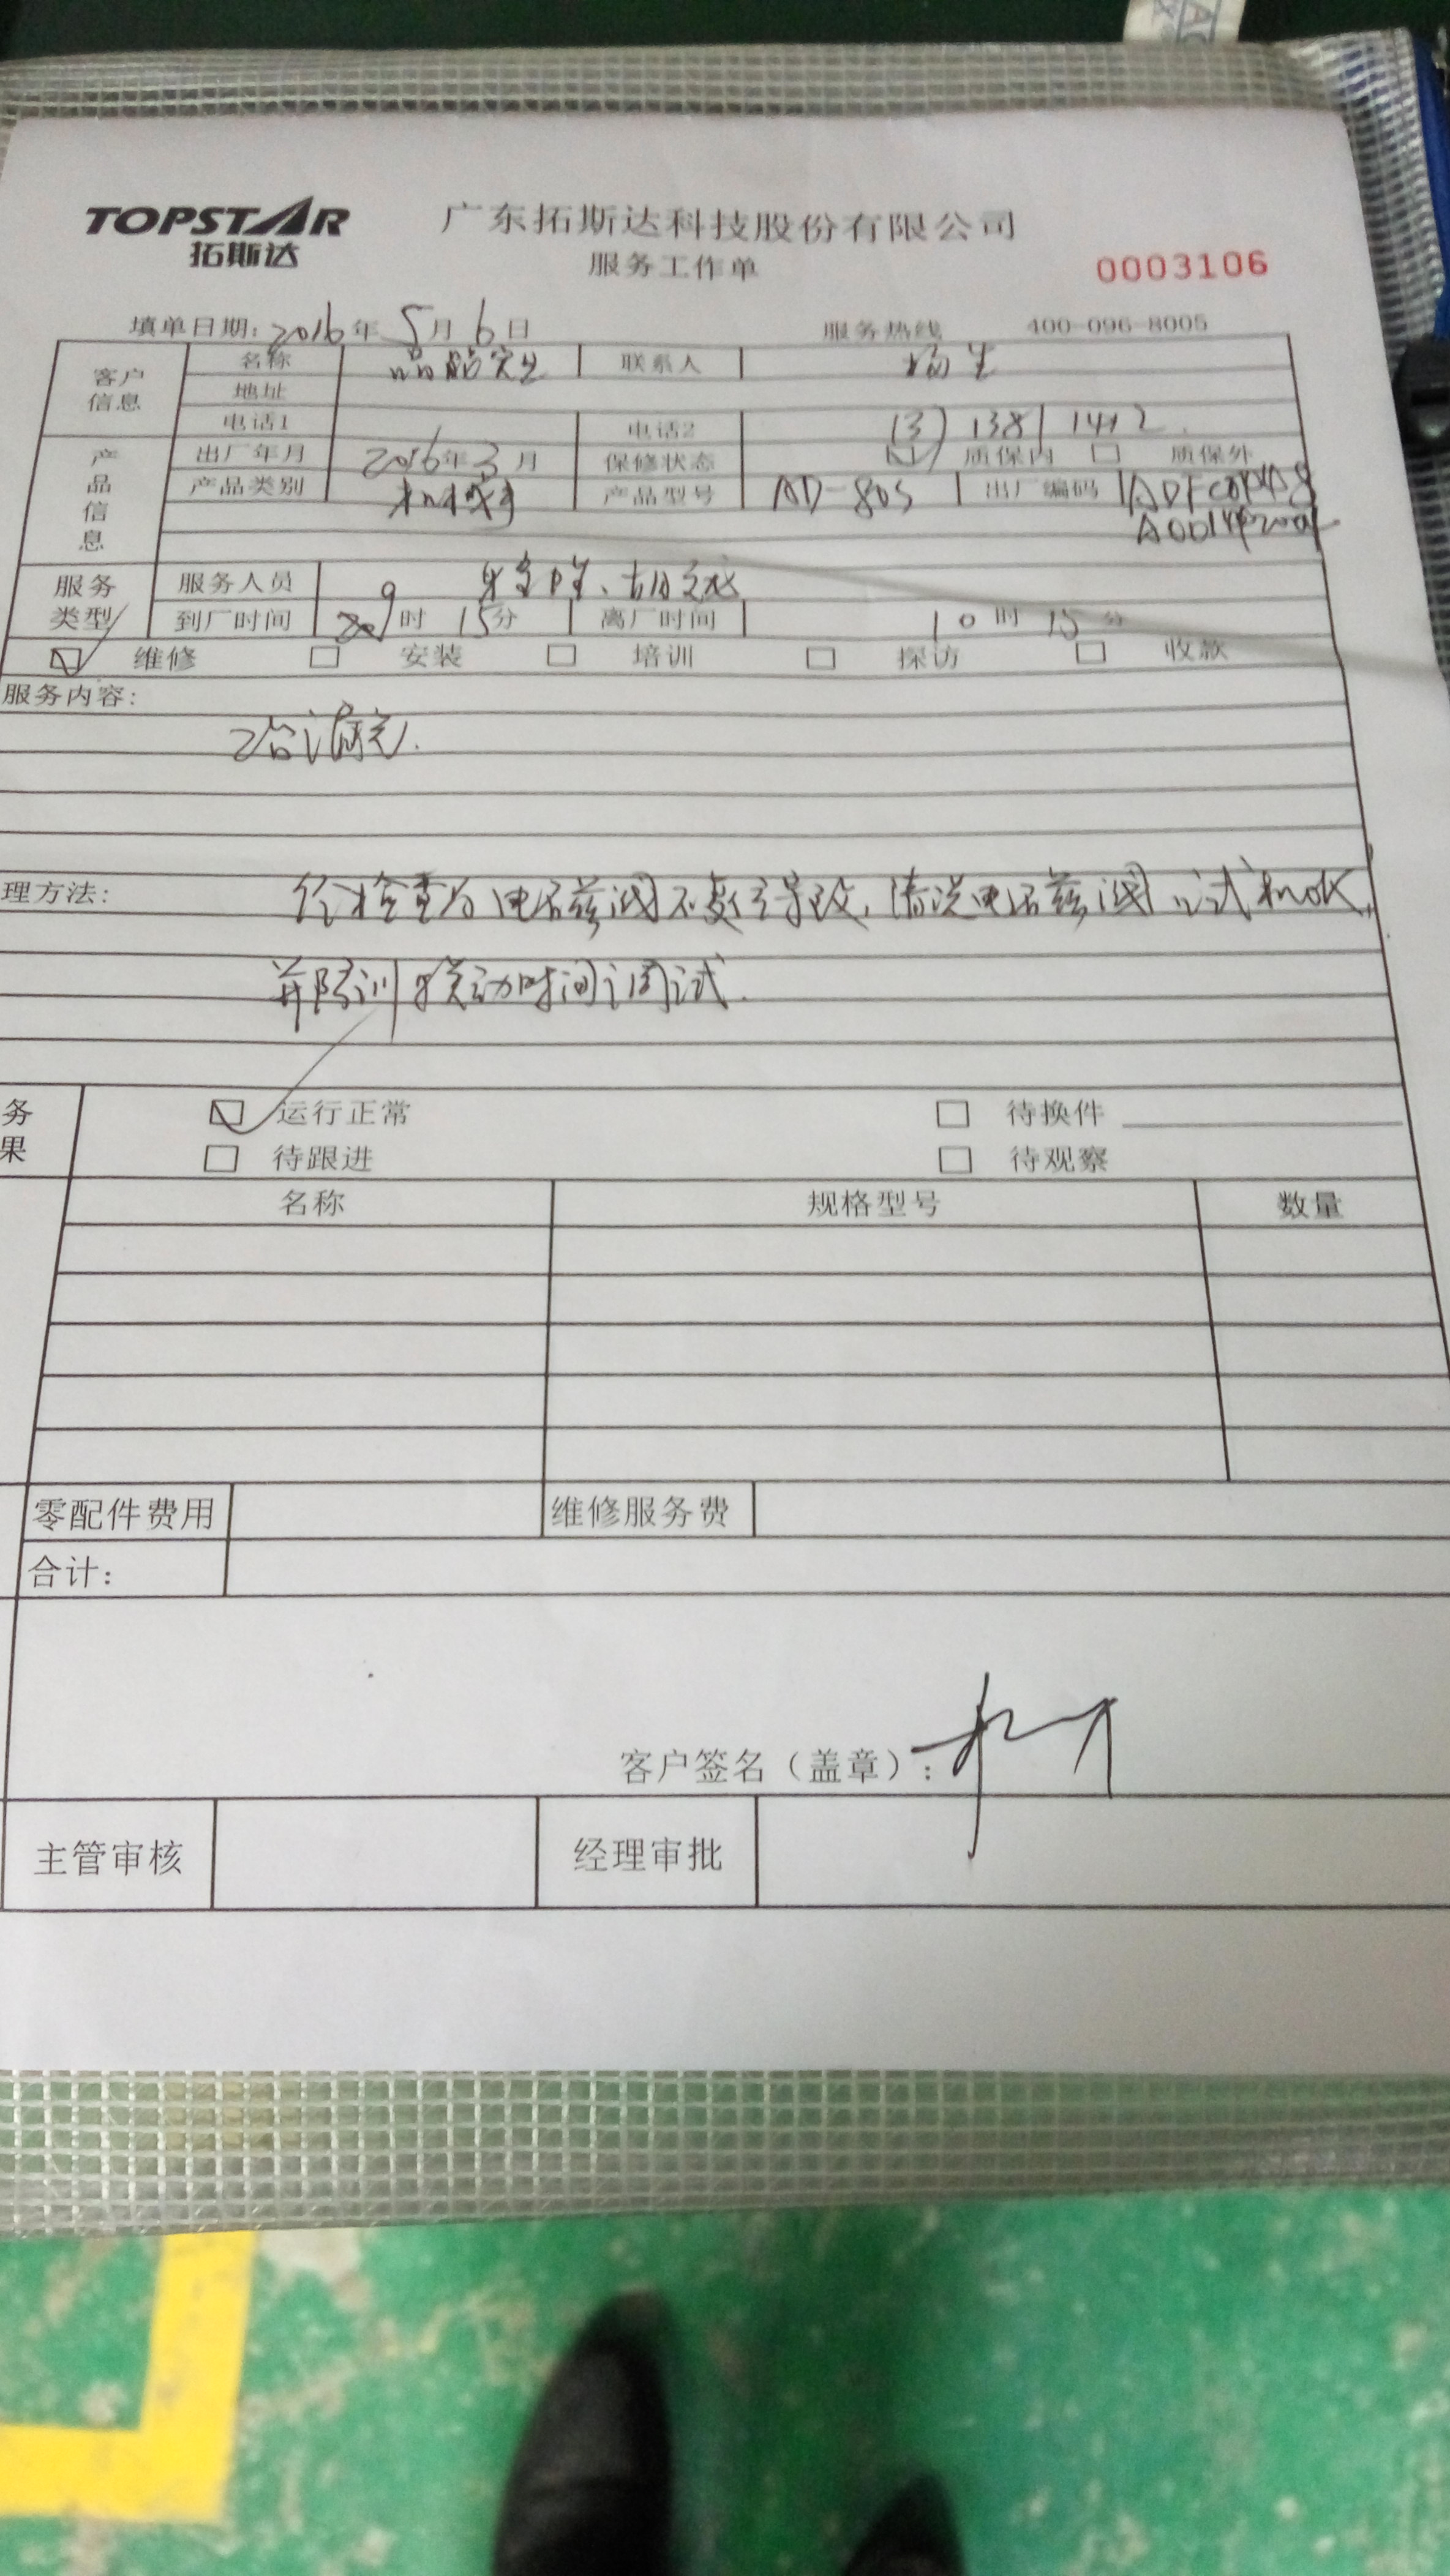 TOPSTAR
拓斯达
广东拓斯达科技股份有限公司
服务工作单
0003106
填单日期: 2016年 5月 6日 服务热线 400-096-8005
客户信息 名称 联系人 杨生
地址
电话1 电话2 13713811412
产品信息 出厂年月 2016年3月 保修状态 质保内 质保外
产品类别 机械手 产品型号 AD-80S 出厂编码
服务类型 服务人员
到厂时间 9时 15分 离厂时间 10时 15分
维修 安装 培训 探访 收款
服务内容:
理方法: 经检查为电磁阀不良导致,清洗电磁阀,试机OK,
并培训 时间调试.
务果 运行正常 待换件
待跟进 待观察
名称 规格型号 数量
零配件费用 维修服务费
合计:
客户签名(盖章):
主管审核 经理审批